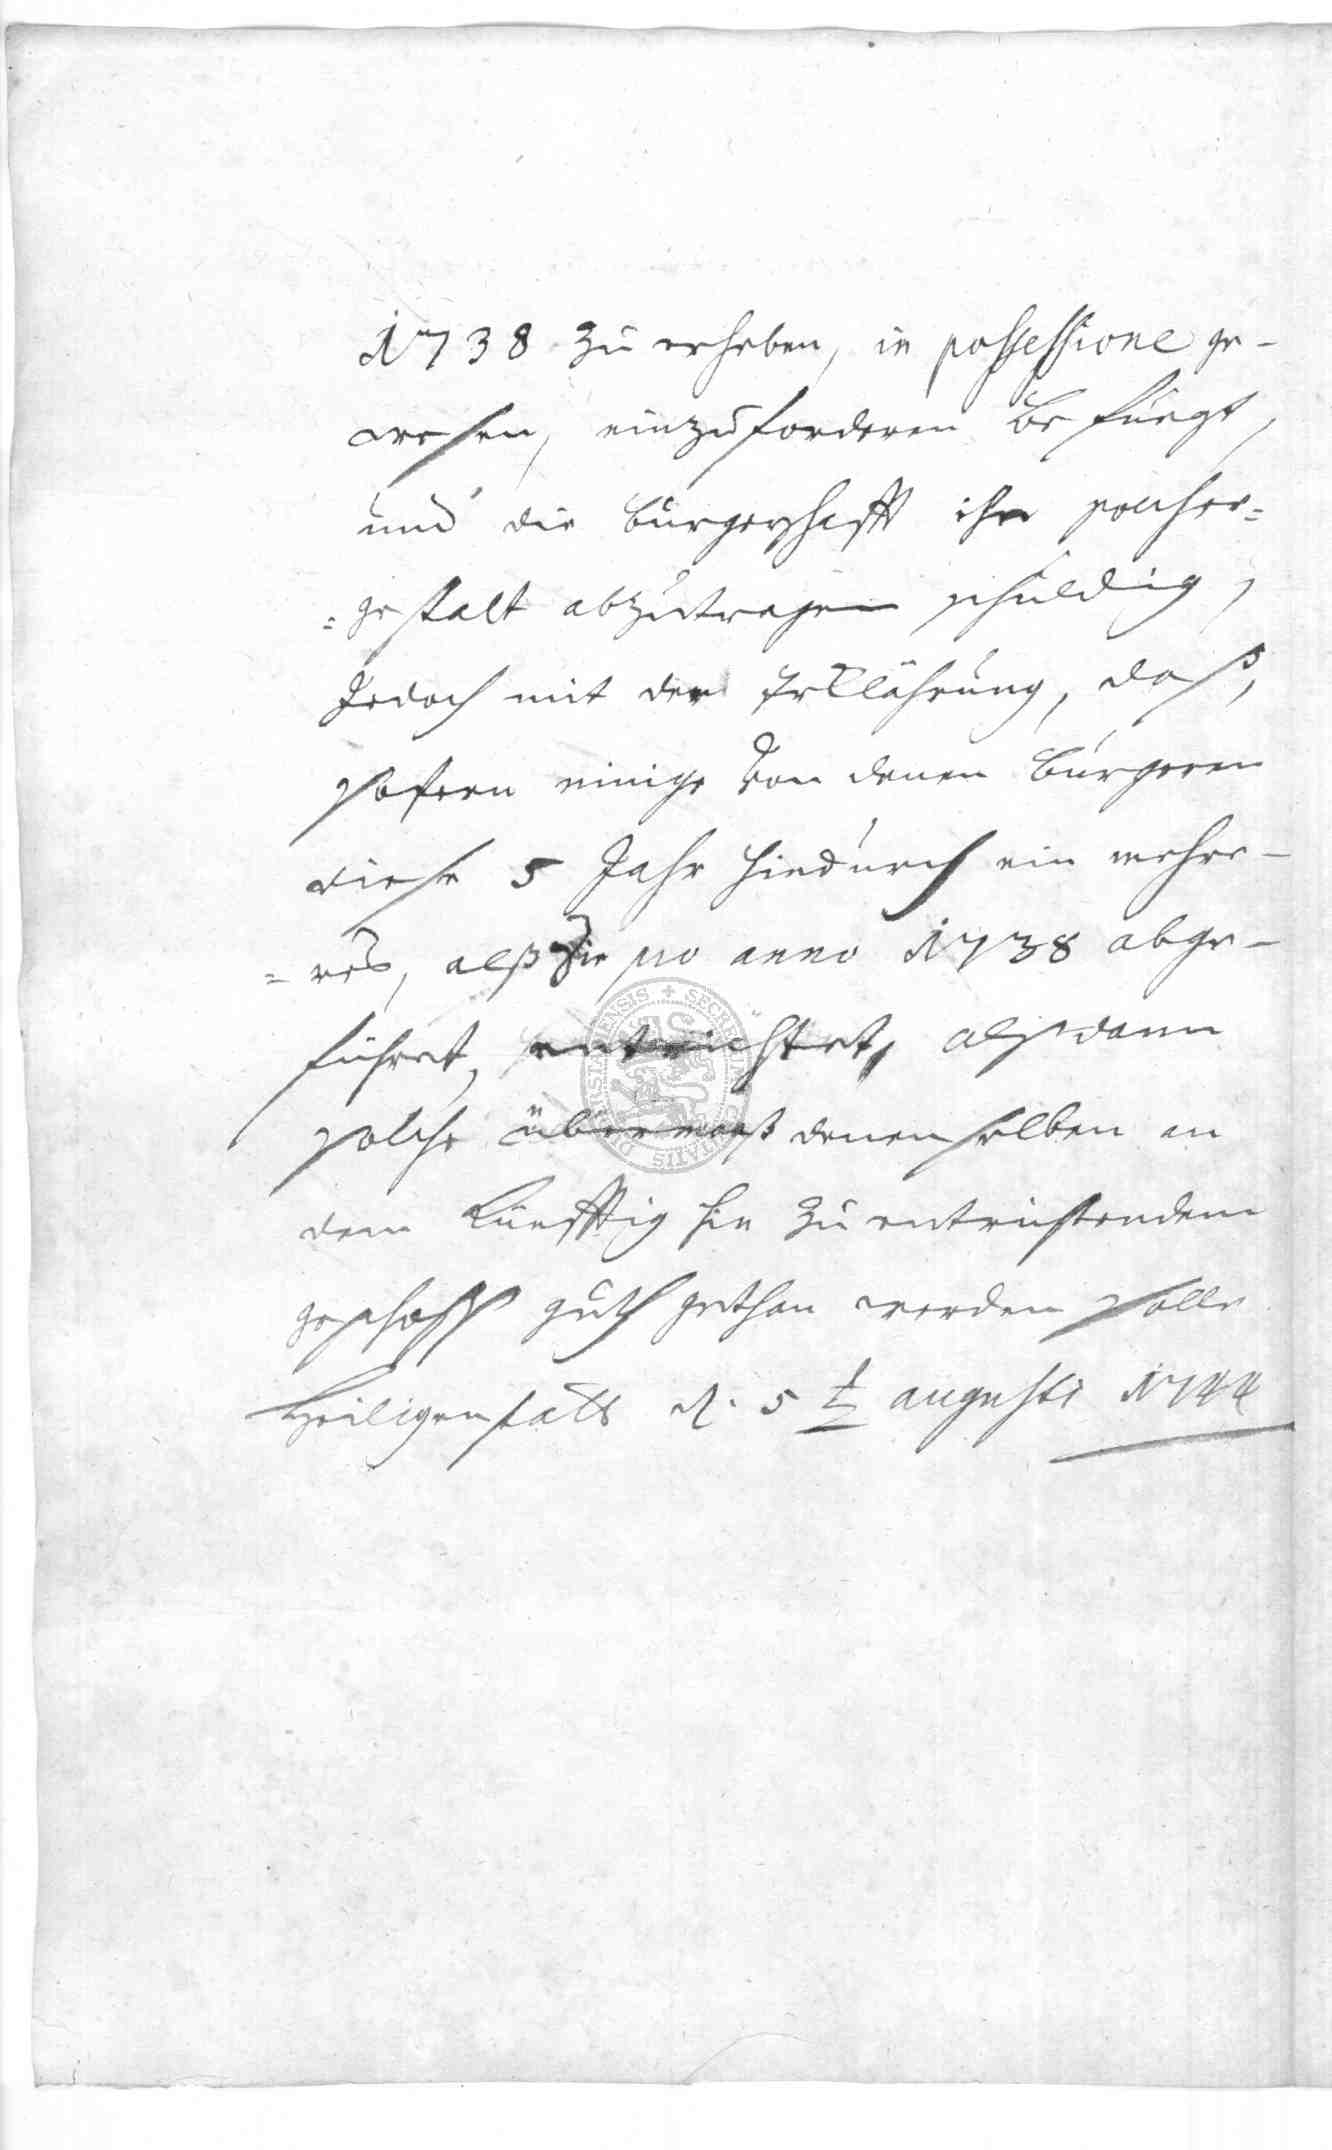 1738 zu erheben, in possessione ge-
wesen, einzuforderen befuegt,
und die bürgerschafft ihn solcher=
=gestalt abzutragen schuldig,
Jedoch mit der Erklährung, daß,
sofern einige von denen bürgeren
diese 5 Jahr hindurch ein mehre-
=res, alß sie pro anno 1738 abge-
führet, entrichtet, alß dann
solche übermaaß denenselben an
dem künfftig hin zu entrichtendem
geschoß guth gethan werden solle
Heiligenstatt d. 5t augusti 1744